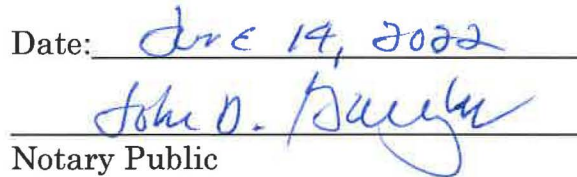 Date: June 14, 2022
John D.
Notary Public